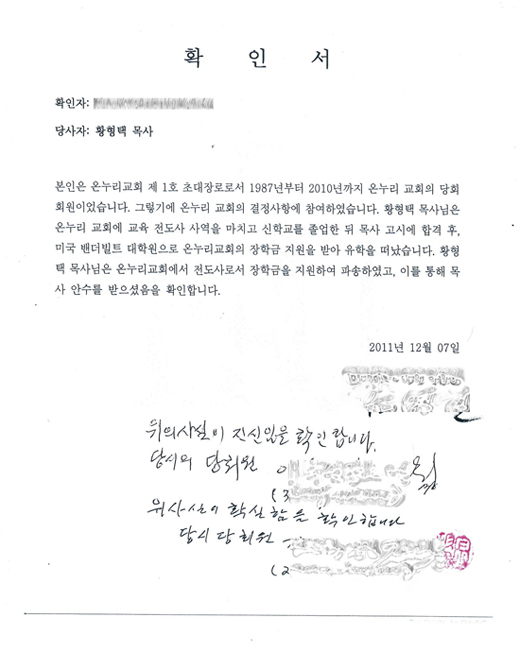 확 인 서
확인자:
당사자: 황형택 목사
본인은 온누리교회 제 1호 초대장로로서 1987년부터 2010년까지 온누리 교회의 당회
회원이었습니다. 그렇기에 온누리 교회의 결정사항에 참여하였습니다. 황형택 목사님은
온누리 교회에 교육 전도사 사역을 마치고 신학교를 졸업한 뒤 목사 고시에 합격 후,
미국 밴더빌트 대학원으로 온누리교회의 장학금 지원을 받아 유학을 떠났습니다. 황형
택 목사님은 온누리교회에서 전도사로서 장학금을 지원하여 파송하였고, 이를 통해 목
사 안수를 받으셨음을 확인합니다.
2011년 12월 07일
위의사실이 진실임을 확인합니다.
당시의 당회원
위사실이 확실함을 확인합니다
당시 당회원